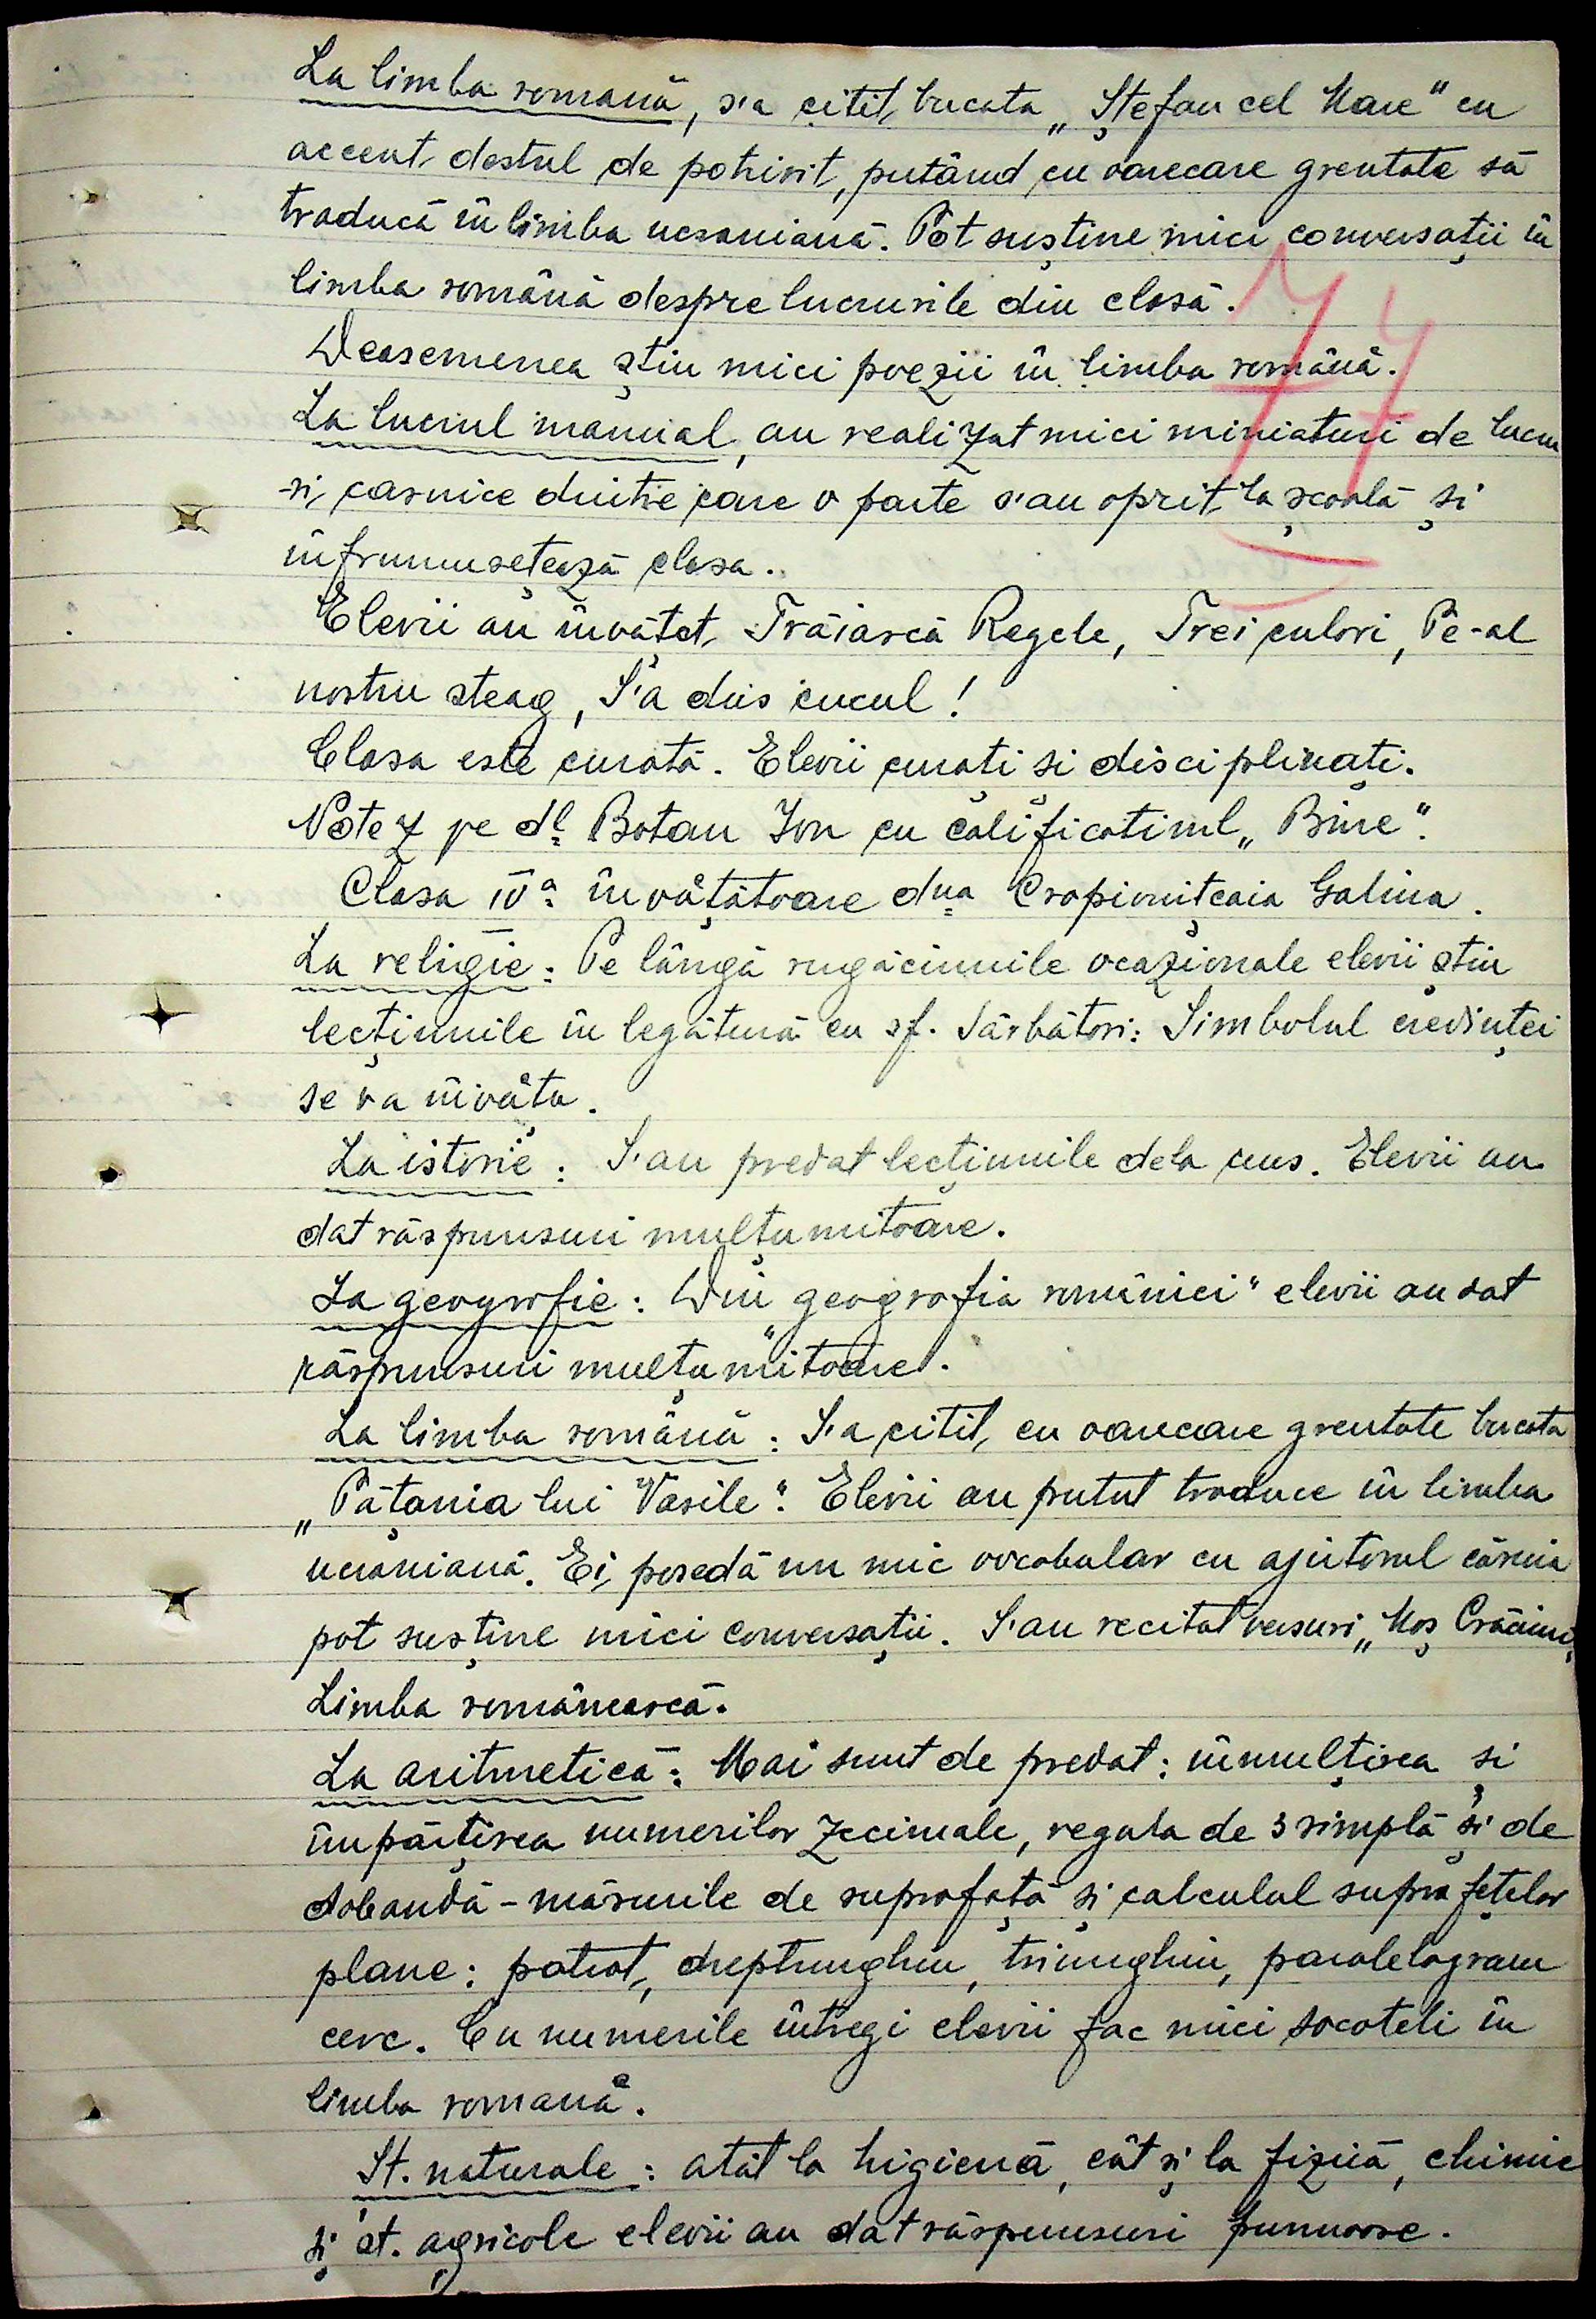 La limba romană, s'a citit, bucata „Ștefan cel Mare" cu
accent destul de potrivit, putând cu oarecare greutate să
traducă în limba ucraniană. Pot susține mici conversații în
limba română despre lucrurile din clasă.
77
Deasemenea știu mici poezii în limba română.
La lucrul manual, au realizat mici miniaturi de lucru
și casnice dintre care o parte s'au oprit la școală și
înfrumusețează clasa.
Elevii au învățat, Trăiască Regele, Trei culori, Pe-al
nostru steag, S'a dus cucul!
Clasa este curată. Elevii curați și disciplinați.
Notez pe dl Botan Ion cu calificativul „Bine".
Clasa IV a învățătoare dna Cropivnițcaia Galina.
La religie: Pe lângă rugăciunile ocazionale elevii știu
lecțiunile în legătură cu sf. Sărbători: Simbolul credinței
se va învăța.
La istorie: S'au predat lecțiunile dela curs. Elevii au
dat răspunsuri mulțumitoare.
La geografie: Din „geografia româniei" elevii au dat
răspunsuri mulțumitoare.
La limba română: S'a citit, cu oarecare greutate bucata
„Pățania lui Vasile". Elevii au putut traduce în limba
ucraniană. Ei, posedă un mic vocabular cu ajutorul căruia
pot susține mici conversații. S'au recitat versuri „Moș Crăciun,
Limba românească.
La aritmetică: Mai sunt de predat: înmulțirea și
împărțirea numerilor zecimale, regula de 3 simplă și de
dobandă - măsurile de suprafață și calculul suprafețelor
plane: patrat, dreptunghiu, triunghiu, paralelogram
cerc. Cu numerile întregi elevii fac mici socoteli în
limba romană.
St. naturale: atât la higienă, cât și la fizică, chimie
și șt. agricole elevii au dat răspunsuri frumoase.